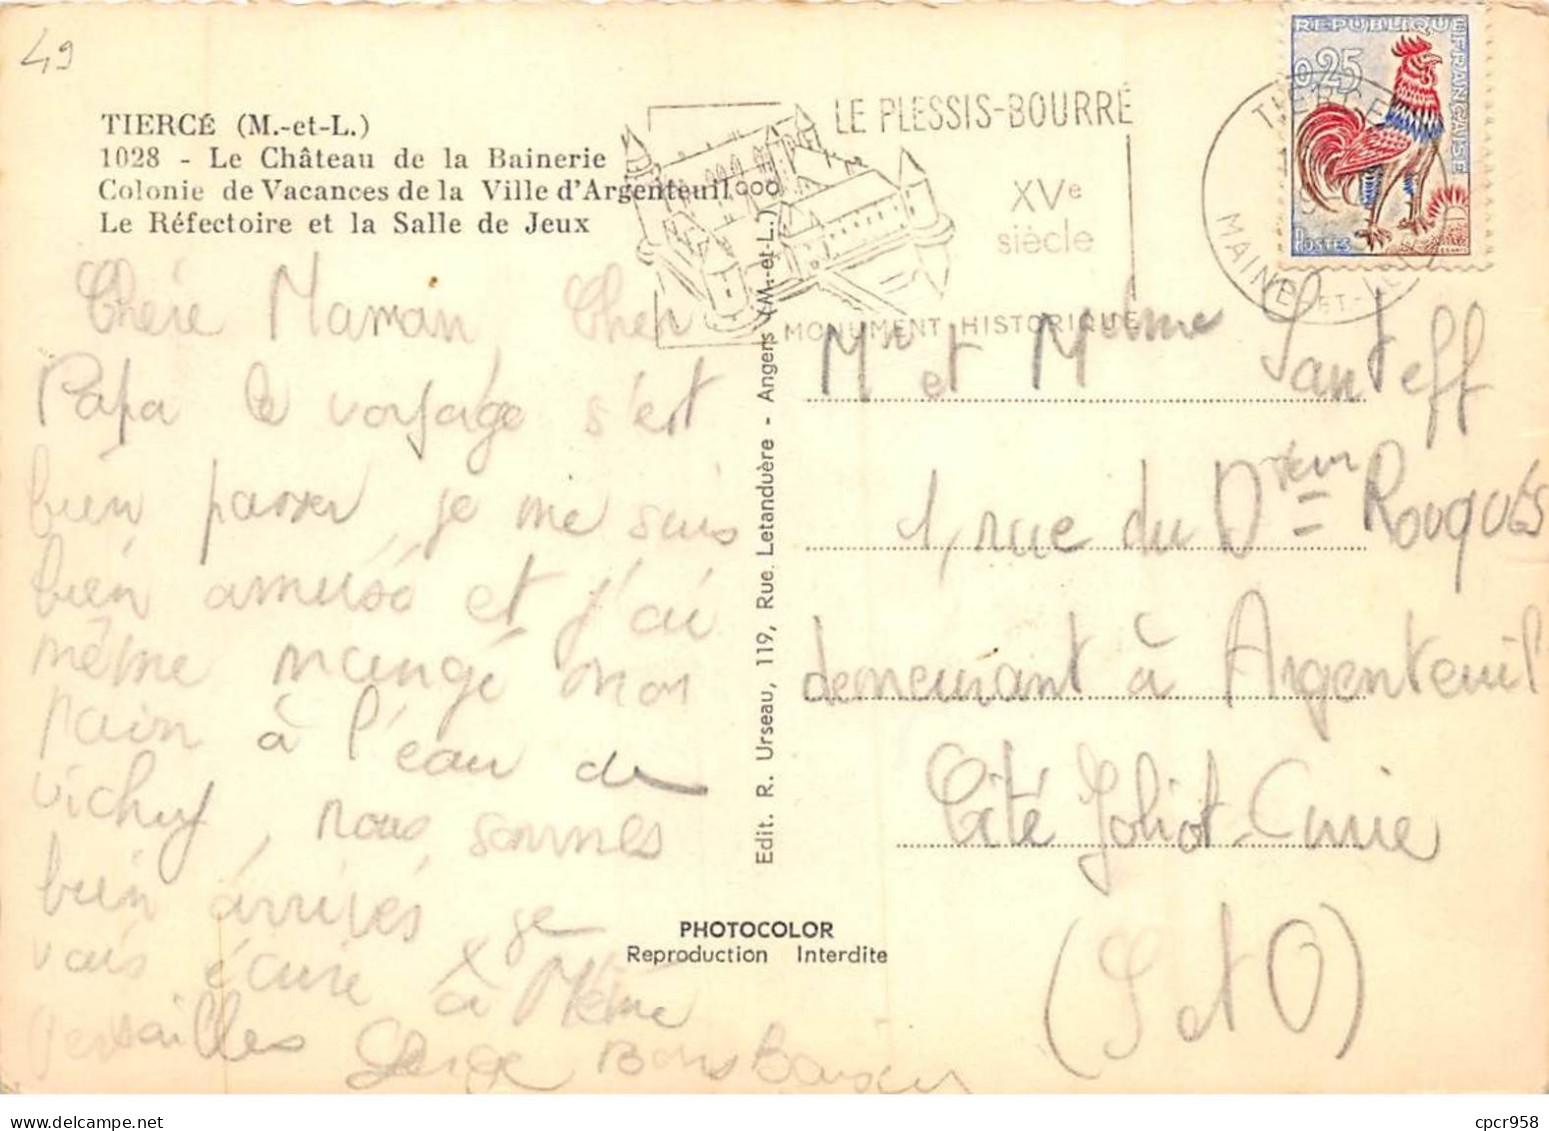 49
TIERCÉ (M.-et-L.)
1028 - Le Château de la Bainerie
Colonie de Vacances de la Ville d'Argenteuil
Le Réfectoire et la Salle de Jeux
LE PLESSIS-BOURRÉ
XVe
siècle
MONUMENT HISTORIQUE
REPUBLIQUE FRANÇAISE
0,25
POSTES
TIERCÉ
MAINE-ET-LOIRE
Chère Maman Cher
Papa le voyage s'est
bien passer, je me suis
bien amusé et j'ai
même mangé mon
pain à l'eau de
vichy, nous sommes
bien arrivés je
vais écrire à Mémé
Versailles Serge Bons Baiser
Edit. R. Urseau, 119, Rue Letanduère - Angers (M.-et-L.)
PHOTOCOLOR
Reproduction Interdite
Mr et Mme Santeff
1, rue du Dteur Rouquès
demeurant à Argenteuil
Cité Joliot-Curie
(S et O)
delcampe.net
cpcr958